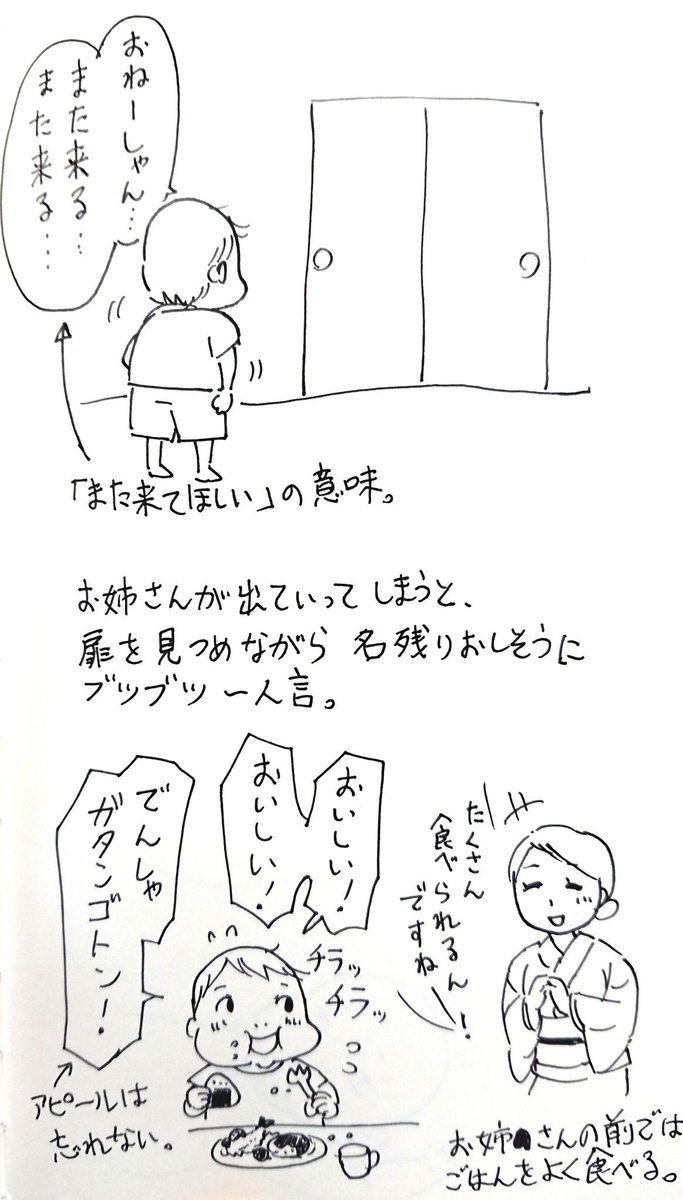 おねーしゃん…
また来る…
また来る…
「また来てほしい」の意味。
お姉さんが出ていってしまうと、
扉を見つめながら名残りおしそうに
ブツブツ一人言。
たくさん
食べられるん
ですね!
おいしい!
おいしい!
でんしゃ
ガタンゴトン!
チラッ
チラッ
アピールは
忘れない。
お姉さんの前では
ごはんをよく食べる。